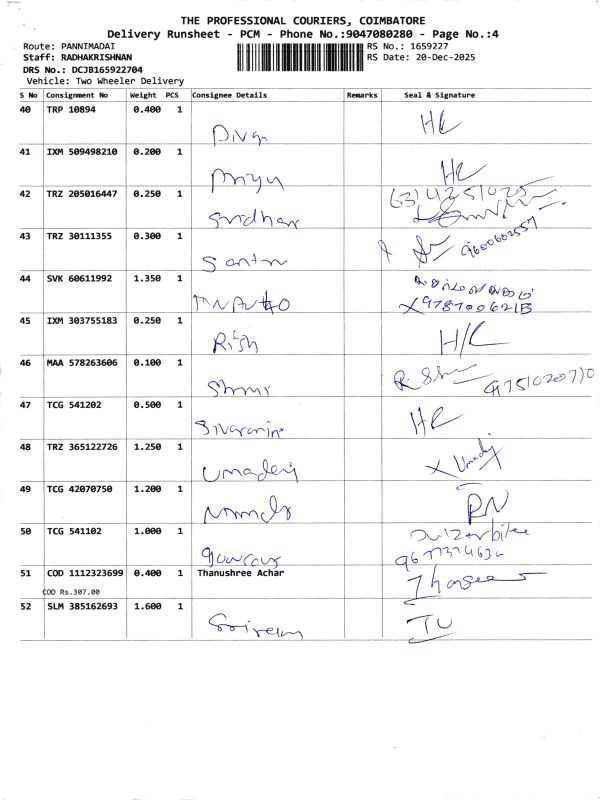 THE PROFESSIONAL COURIERS, COIMBATORE
Delivery Runsheet - PCM - Phone No.:9047080280 - Page No.:4
Route: PANNIMADAI RS No.: 1659227
Staff: RADHAKRISHNAN RS Date: 20-Dec-2025
DRS No.: DCJB165922704
Vehicle: Two Wheeler Delivery
S No Consignment No Weight PCS Consignee Details Remarks Seal & Signature
40 TRP 10894 0.400 1 Divya H/L
41 IXM 509498210 0.200 1 Priya HL
42 TRZ 205016447 0.250 1 Sridhar
43 TRZ 30111355 0.300 1 9600602557
44 SVK 60611992 1.350 1
45 IXM 303755183 0.250 1 H/L
46 MAA 578263606 0.100 1
47 TCG 541202 0.500 1 HL
48 TRZ 365122726 1.250 1 Umadevi X Umadevi
49 TCG 42070750 1.200 1
50 TCG 541102 1.000 1
51 COD 1112323699 0.400 1 Thanushree Achar
COD Rs.307.00
52 SLM 385162693 1.600 1